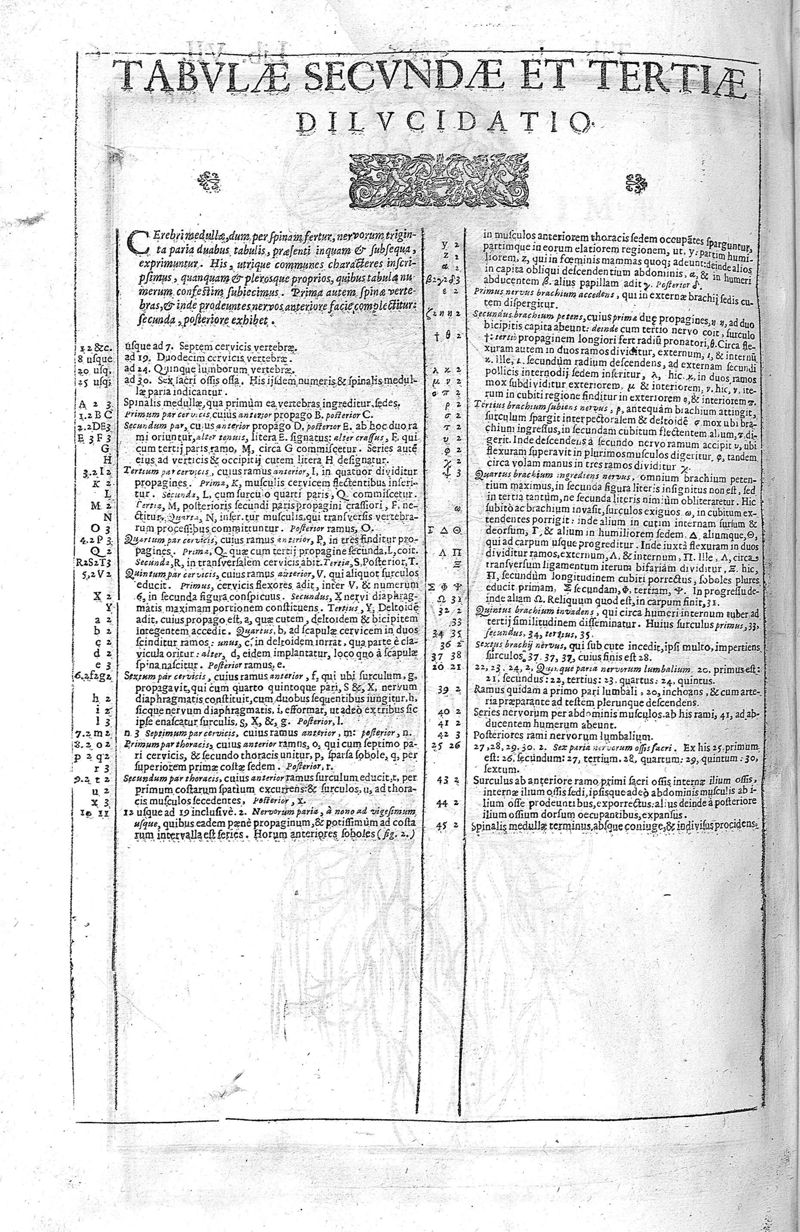 TABVLÆ SECVNDÆ ET TERTIÆ
DILVCIDATIO.
CErebri medullæ, dum per spinam fertur, nervorum trigin-
ta paria duabus tabulis, præsenti inquam & subsequa,
exprimuntur. His, utrique communes characteres inscri-
psimus, quanquam & plerosque proprios, quibus tabulæ nu
merum confestim subiecimus. Prima autem spinæ verte-
bras, & inde prodeuntes nervos anteriore facie complectitur:
secunda, posteriore exhibet.
1 2 &c. usque ad 7. Septem cervicis vertebræ.
8 usque ad 19. Duodecim cervicis vertebræ.
20 usq. ad 24. Quinque lumborum vertebræ.
25 usq; ad 30. Sex sacri ossis ossa. His ijsdem numeris & spinalis medul-
læ paria indicantur.
A 2 3 Spinalis medullæ, qua primùm ea vertebras ingreditur, sedes.
1.2 B C Primum par cervicis, cuius anterior propago B, posterior C.
2.2DE3 Secundum par, cuius anterior propago D, posterior E. ab hoc duo ra
E 3 F 3 mi oriuntur, alter tenuis, litera E. signatus: alter crassus, F. qui
G cum tertij paris ramo, M, circa G commiscetur. Series autē
H eius ad verticis & occipitij cutem litera H designatur.
3.2 I 2 Tertium par cervicis, cuius ramus anterior, I, in quatuor dividitur
K 2 propagines. Prima, K, musculis cervicem flectentibus inseri-
L tur. Secunda, L, cum surculo quarti paris, Q, commiscetur.
M 2 Tertia, M, posterioris secundi paris propagini crassiori, F. ne-
N ctitur. Quarta, N, inseritur musculis, qui transversis vertebra-
O 3 rum processibus committuntur. Posterior ramus, O.
4.2 P 3 Quartum par cervicis, cuius ramus anterior, P, in tres finditur pro-
Q 2 pagines. Prima, Q, quæ cum tertij propagine secunda, L, coit.
R2S2T3 Secunda, R, in transversalem cervicis abit. Tertia, S. Posterior, T.
5,2 V 2 Quintum par cervicis, cuius ramus anterior, V. qui aliquot surculos
educit. Primus, cervicis flexores adit, inter V. & numerum
X 2 6, in secunda figura conspicuus. Secundus, X nervi diaphrag-
Y matis maximam portionem constituens. Tertius, Y, Deltoidē
a 2 adit, cuius propago est, a, quæ cutem, deltoidem & bicipitem
b 2 integentem accedit. Quartus, b, ad scapulæ cervicem in duos
c 2 scinditur ramos: unus, c, in deltoidem intrat, qua parte è cla-
d 2 vicula oritur: alter, d, eidem implantatur, loco quo à scapulæ
e 3 spina nascitur. Posterior ramus, e.
6.2f2g2 Sextum par cervicis, cuius ramus anterior, f, qui ubi surculum, g,
propagavit, qui cum quarto quintoque pari, S & X, nervum
h 2 diaphragmatis constituit, cum duobus sequentibus iungitur. h,
i 2 sicque nervum diaphragmatis, i, efformat, ut adeò ex tribus sic
l 3 ipse enascatur surculis, S, X, & g. Posterior, l.
7.2 m 2 n 3 Septimum par cervicis, cuius ramus anterior, m: posterior, n.
8.2 o 2 Primum par thoracis, cuius anterior ramus, o, qui cum septimo pa-
p 2 q 2 ri cervicis, & secundo thoracis unitur, p, sparsa sobole, q, per
r 3 superiorem primæ costæ sedem. Posterior, r.
9.2 t 2 Secundum par thoracis, cuius anterior ramus surculum educit, t, per
u 2 primum costarum spatium excurrens: & surculos, u, ad thora-
x 3 cis musculos secedentes. Posterior, x.
10 11 12 usque ad 19 inclusivè. 2. Nervorum paria, à nono ad vigesimum
usque, quibus eadem pænè propaginum, & potissimùm ad costa
rum intervalla est series. Horum anteriores soboles (fig. 2.)
in musculos anteriorem thoracis sedem occupātes sparguntur,
y 2 partimque in eorum elatiorem regionem, ut. y: partim humi-
z 2 liorem, z, qui in fœminis mammas quoq; adeunt: deinde alios
α 2 in capita obliqui descendentium abdominis, α, & in humeri
β2γ2δ3 abducentem β. alius papillam adit γ. Posterior δ.
ε 2 Primus nervus brachium accedens, qui in externæ brachij sedis cu-
tem dispergitur.
ζ2η η 2 Secundus brachium petens, cuius prima duę propagines, η η, ad duo
bicipitis capita abeunt: deinde cum tertio nervo coit, surculo
† θ 2 †: tertiò propaginem longiori fert radiū pronatori, θ. Circa fle-
xuram autem in duos ramos dividitur, externum, ι, & internū
κ. Ille, ι. secundùm radium descendens, ad externam secundi
λ κ 2 pollicis internodij sedem inseritur, λ, hic. κ, in duos ramos
μ ν 2 mox subdividitur exteriorem, μ & interiorem, ν. hic, ν, ite-
ο π 2 rum in cubiti regione finditur in exteriorem ο, & interiorem π.
ρ 2 Tertius brachium subiens nervus, ρ, antequàm brachium attingit,
σ 2 surculum spargit inter pectoralem & deltoidē σ mox ubi bra-
τ 2 chium ingressus, in secundam cubitum flectentem alium, τ. di-
υ 2 gerit. Inde descendens à secundo nervo ramum accipit υ, ubi
φ 2 flexuram superavit in plurimos musculos digeritur, φ, tandem
χ 2 circa volam manus in tres ramos dividitur χ.
ψ 3 Quartus brachium ingrediens nervus, omnium brachium peten-
tium maximus, in secunda figura literis insignitus non est, sed
in tertia tantùm, ne secunda literis nimiùm obliteraretur. Hic
ω. subitò ac brachium invasit, surculos exiguos ω, in cubitum ex-
tendentes porrigit: inde alium in cutim internam sursum &
Γ Δ Θ deorsum, Γ, & alium in humiliorem sedem. Δ, aliumque, Θ,
qui ad carpum usque progreditur. Inde iuxta flexuram in duos
Λ Π dividitur ramos, externum, Λ, & internum, Π. Ille, Λ, circa
Ξ transversum ligamentum iterum bifariàm dividitur, Ξ. hic,
Π, secundùm longitudinem cubiti porrectus, soboles plures
Σ Φ Ψ educit primam, Σ secundam, Φ, tertiam, Ψ. In progressu de-
Ω 31 inde aliam Ω. Reliquum quod est, in carpum finit, 31.
32 2 Quintus brachium invadens, qui circa humeri internum tuber ad
33 tertij similitudinem disseminatur. Huius surculus primus, 33,
34 35 secundus, 34, tertius, 35.
36 2 Sextus brachij nervus, qui sub cute incedit, ipsi multo, impertiens
37 38 surculos, 37. 37, 37, cuius finis est 38.
20 21 22, 23, 24, 2, Quinque paria nervorum lumbalium. 20. primus est:
21. secundus: 22, tertius: 23. quartus: 24. quintus.
39 2 Ramus quidam a primo pari lumbali, 20, inchoans, & cum arte-
ria præparante ad testem plerunque descendens.
40 2 Series nervorum per abdominis musculos. ab his rami, 41, ad ab-
41 2 ducentem humerum abeunt.
42 3 Posteriores rami nervorum lumbalium.
25 26 27, 28, 29, 30. 2. Sex paria nervorum ossis sacri. Ex his 25. primum
est: 26. secundum: 27, tertium. 28, quartum: 29, quintum: 30,
sextum.
43 2 Surculus ab anteriore ramo primi sacri ossis internæ ilium ossis,
internæ ilium ossis sedi, ipsisque adeò abdominis musculis ab i-
44 2 lium osse prodeuntibus, exporrectus: alius deinde à posteriore
ilium ossium dorsum occupantibus, expansus.
45 2 Spinalis medullæ terminus, absque coniuge, & indivisus procidens.